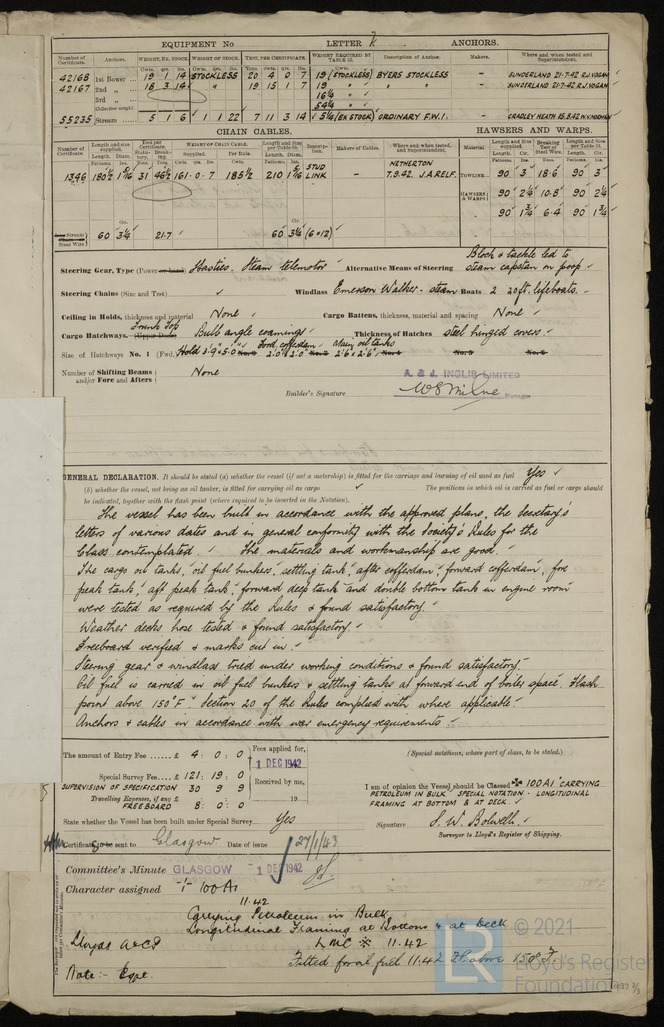 EQUIPMENT No LETTER k ANCHORS.
Number of Certificate. Anchors. WEIGHT, EX. STOCK. WEIGHT OF STOCK. TEST, PER CERTIFICATE. WEIGHT REQUIRED BY TABLE 53. Description of Anchor. Makers. Where and when tested and Superintendent.
42168 1st Bower 19 1 14 STOCKLESS 20 4 0 7 19 (STOCKLESS) BYERS STOCKLESS - SUNDERLAND 21.7.42 R.J.VOGAN
42167 2nd „ 18 3 14 " 19 15 1 7 19 " " " - SUNDERLAND 21.7.42 R.J.VOGAN
3rd „ 16¼
Collective weight 54¼
55235 Stream 5 1 6 1 1 22 7 11 3 14 5¼ (EX STOCK) ORDINARY F.W.I. - CRADLEY HEATH
CHAIN CABLES. HAWSERS AND WARPS.
Number of Certificate. Length and size supplied. Test per Certificate. WEIGHT OF CHAIN CABLE. Length and Size per Table 53. Description. Makers of Cables. Where and when tested, and Superintendent. Material Length and Size supplied. Breaking Test of Steel Wire. Length and Size per Table 53.
1346 180½ 1 5/16 31 46½ 161.0.7 185½ 210 1 5/16 STUD LINK - NETHERTON 7.9.42 J.A.RELF. TOWLINE 90 3 18.6 90 3
HAWSERS & WARPS 90 2¼ 10.8 90 2¼
90 1¾ 6.4 90 1¾
Stream Steel Wire 60 3¼ 21.7 60 3¼ (6x12)
Steering Gear, Type (Power or hand) Hasties. Steam telemotor Alternative Means of Steering Block & tackle led to steam capstan on poop
Steering Chains (Size and Test) Windlass Emerson Walker - steam Boats 2 20ft. lifeboats.
Ceiling in Holds, thickness and material None Cargo Battens, thickness, material and spacing None
Cargo Hatchways. (Upper Deck) Trunk Top Bulb angle coamings Thickness of Hatches steel hinged covers.
Size of Hatchways No. 1 (Fwd.) Hold 3'9" x 5'0" No. 2 Ford. cofferdam 2'0" x 2'0" No. 3 Main oil tanks 2'6" x 2'6" No. 4 No. 5 No. 6
Number of Shifting Beams and/or Fore and Afters None
A. & J. INGLIS LIMITED
Builder's Signature W S Milne Manager
GENERAL DECLARATION. It should be stated (a) whether the vessel (if not a motorship) is fitted for the carriage and burning of oil used as fuel Yes
(b) whether the vessel, not being an oil tanker, is fitted for carrying oil as cargo The positions in which oil is carried as fuel or cargo should
be indicated, together with the flash point (where required to be inserted in the Notation).
The vessel has been built in accordance with the approved plans, the Secretary's
letters of various dates and in general conformity with the Society's Rules for the
Class contemplated. The materials and workmanship are good.
The cargo oil tanks, oil fuel bunkers, settling tank, after cofferdam, forward cofferdam, fore
peak tank, aft peak tank, forward deep tank and double bottom tank in engine room
were tested as required by the Rules & found satisfactory.
Weather decks hose tested & found satisfactory.
Freeboard verified & marks cut in.
Steering gear & windlass tried under working conditions & found satisfactory
Oil fuel is carried in oil fuel bunkers & settling tanks at forward end of boiler space. Flash
point above 150°F. Section 20 of the Rules complied with where applicable
Anchors & cables in accordance with war emergency requirements
The amount of Entry Fee ...... £ 4 : 0 : 0 Fees applied for,
1 DEC 1942
Special Survey Fee.... £ 121 : 19 : 0
SUPERVISION OF SPECIFICATION 30 9 9 Received by me,
Travelling Expenses, if any £
FREEBOARD 8 : 0 : 0 19
(Special notations, where part of class, to be stated.)
I am of opinion the Vessel should be Classed ✠ 100A1 "CARRYING
PETROLEUM IN BULK" SPECIAL NOTATION - LONGITUDINAL
FRAMING AT BOTTOM & AT DECK.
State whether the Vessel has been built under Special Survey Yes
Signature S. W. Bolwell.
Surveyor to Lloyd's Register of Shipping.
Certificate to be sent to Glasgow Date of issue 27/1/43
Committee's Minute GLASGOW 1 DEC 1942
Character assigned 100A1
11.42
Carrying Petroleum in Bulk
Longitudinal Framing at Bottom & at Deck
Lloyds A&CP LMC ✠ 11.42
Fitted for oil fuel 11.42 F.P. above 150°F.
Note:- Eqpt.
© 2021
LR
Lloyd's Register
Foundation